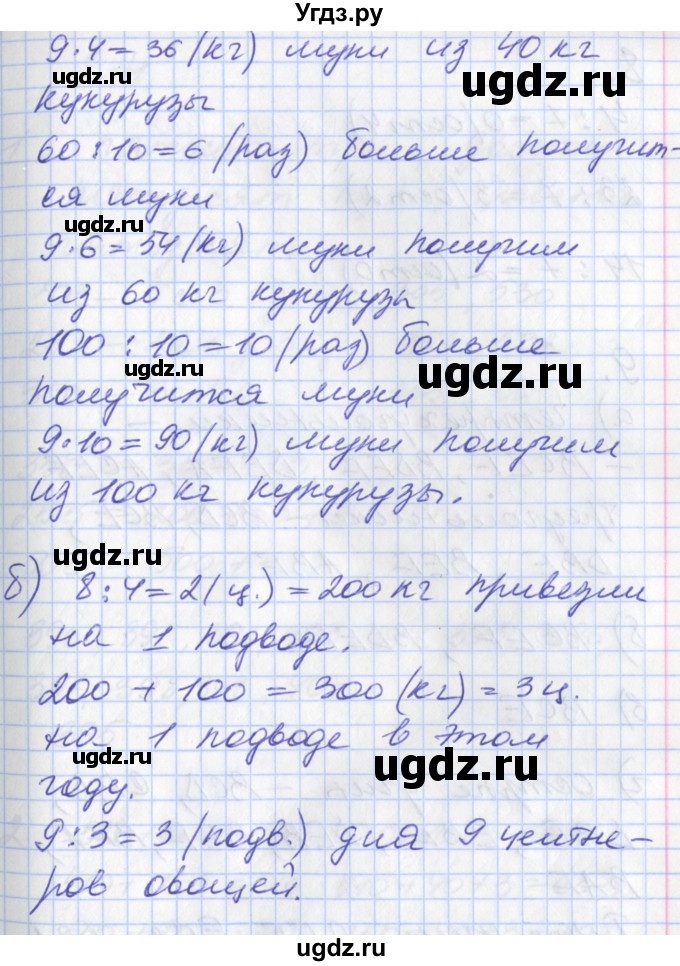 Угдз.ру
9·4=36(кг) муки из 40 кг
ugdz.ru
кукурузы
60:10=6(раз) больше получит-
ся муки
ugdz.ru
9·6=54(кг) муки получим
из 60 кг кукурузы
100:10=10(раз) больше
ugdz.ru
получится муки
9·10=90(кг) муки получим
из 100 кг кукурузы.
ugdz.ru
б) 8:4=2(ц.)=200кг привезли
на 1 подводе.
200+100=300(кг)=3ц.
на 1 подводе в этом
ugdz.ru
году.
9:3=3(подв.) для 9 центне-
ров овощей.
ugdz.ru